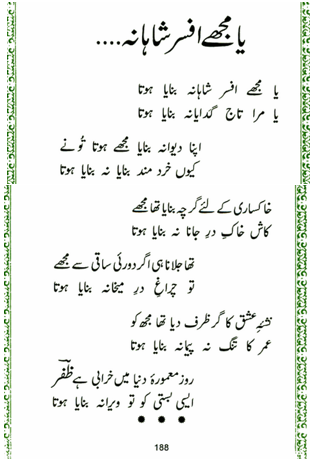 یا مجھے افسر شاہانہ....
یا مجھے افسر شاہانہ بنایا ہوتا
یا مرا تاج گدایانہ بنایا ہوتا
اپنا دیوانہ بنایا مجھے ہوتا تُو نے
کیوں خرد مند بنایا نہ بنایا ہوتا
خاکساری کے لئے گرچہ بنایا تھا مجھے
کاش خاکِ درِ جانا نہ بنایا ہوتا
تھا جلانا ہی اگر دورئی ساقی سے مجھے
تو چراغِ درِ میخانہ بنایا ہوتا
نشۂ عشق کا گر ظرف دیا تھا مجھ کو
عمر کا تنگ نہ پیمانہ بنایا ہوتا
روز معمورۂ دنیا میں خرابی ہے ظفرؔ
ایسی بستی کو تو ویرانہ بنایا ہوتا
188